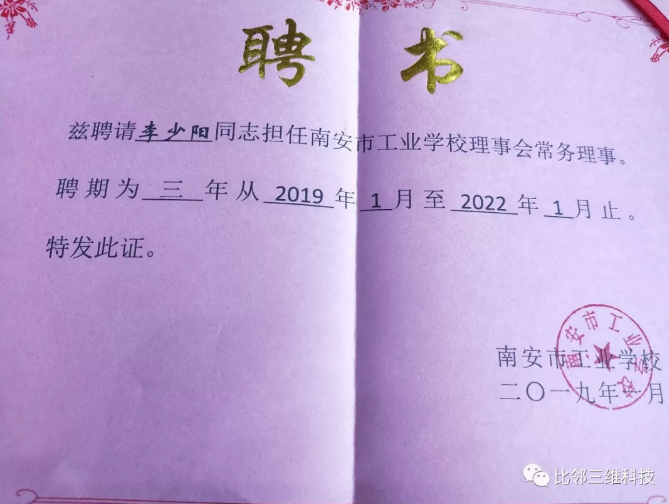 聘书
兹聘请李少阳同志担任南安市工业学校理事会常务理事。
聘期为三年从2019年1月至2022年1月止。
特发此证。
南安市工业学校
南安市工业学校
二〇一九年一月
比邻三维科技